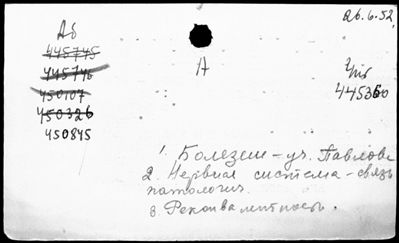 Аб
26.6.52
445745
445746
450107
450326
450845
А
Чит
445360
1. Болезни - уч. Павлова
2. Нервная система - связь
патология.
3 Реконвалентность.